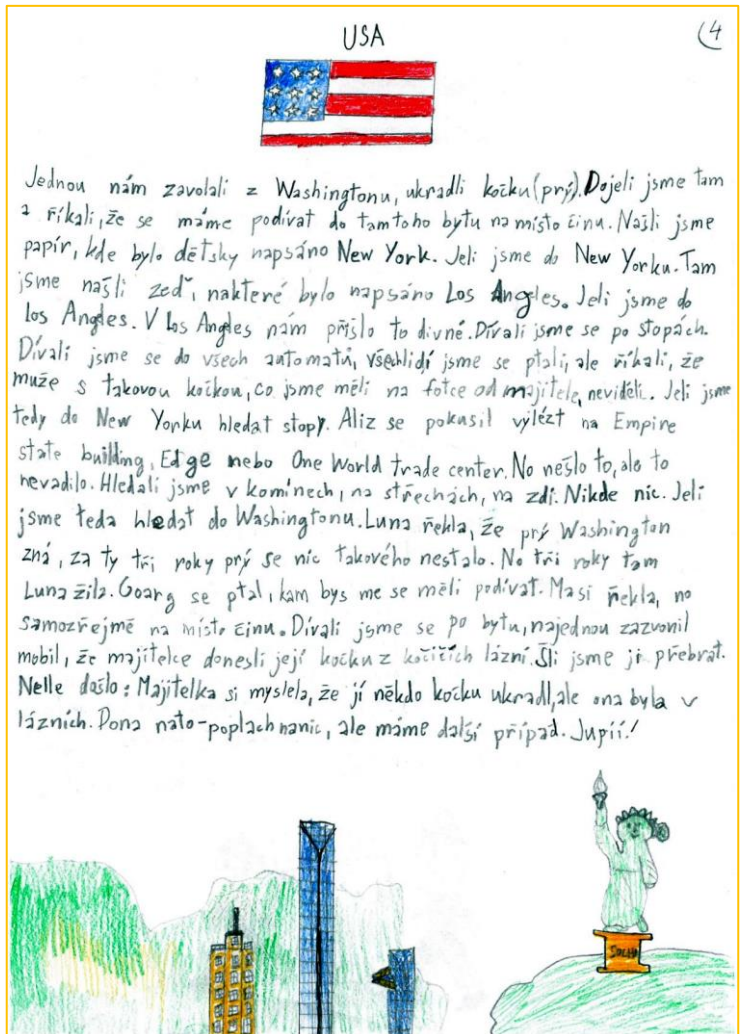 USA
(4
Jednou nám zavolali z Washingtonu, ukradli kočku (prý). Dojeli jsme tam
a říkali, že se máme podívat do tamtoho bytu na místo činu. Našli jsme
papír, kde bylo dětsky napsáno New York. Jeli jsme do New Yorku. Tam
jsme našli zeď, nakteré bylo napsáno Los Angles. Jeli jsme do
Los Angles. V Los Angles nám přišlo to divné. Dívali jsme se po stopách.
Dívali jsme se do všech automatů, všechlidí jsme se ptali, ale říkali, že
muže s takovou kočkou, co jsme měli na fotce od majitele, neviděli. Jeli jsme
tedy do New Yorku hledat stopy. Aliz se pokusil vylézt na Empire
state building, Edge nebo One World trade center. No nešlo to, ale to
nevadilo. Hledali jsme v komínech, na střechách, na zdi. Nikde nic. Jeli
jsme teda hledat do Washingtonu. Luna řekla, že prý Washington
zná, za ty tři roky prý se nic takového nestalo. No tři roky tam
Luna žila. Goarg se ptal, kam bys me se měli podívat. Masi řekla, no
samozřejmě na místo činu. Dívali jsme se po bytu, najednou zazvonil
mobil, že majitelce donesli její kočku z kočičích lázní. Šli jsme ji přebrat.
Nelle došlo: Majitelka si myslela, že jí někdo kočku ukradl, ale ona byla v
lázních. Dona nato-poplach nanic, ale máme další případ. Jupíí!